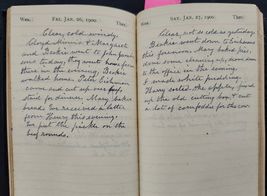 WEA. FRI. JAN. 26, 1900. THER.
Clear, cold, windy.
Lloyd, Minnie & Margaret
and Beckie went to John for
some today, they went home from
there in the evening, Beckie
walked home. Pete
came and cut up our
stead for dinner. Mary baker
bread. We received a letter
from Henry this evening.
We put the pickle on the
beef rounds.
WEA. SAT. JAN. 27, 1900. THER.
Clear, not so cold as yesterday.
Beckie went down to
this forenoon. Mary baked pies,
done some cleaning up, down and
in the office in the evening.
I made white pudding.
Harry sorted the apples, fixed
up the old cutting box & cut
a lot of cornfodder for the cow.